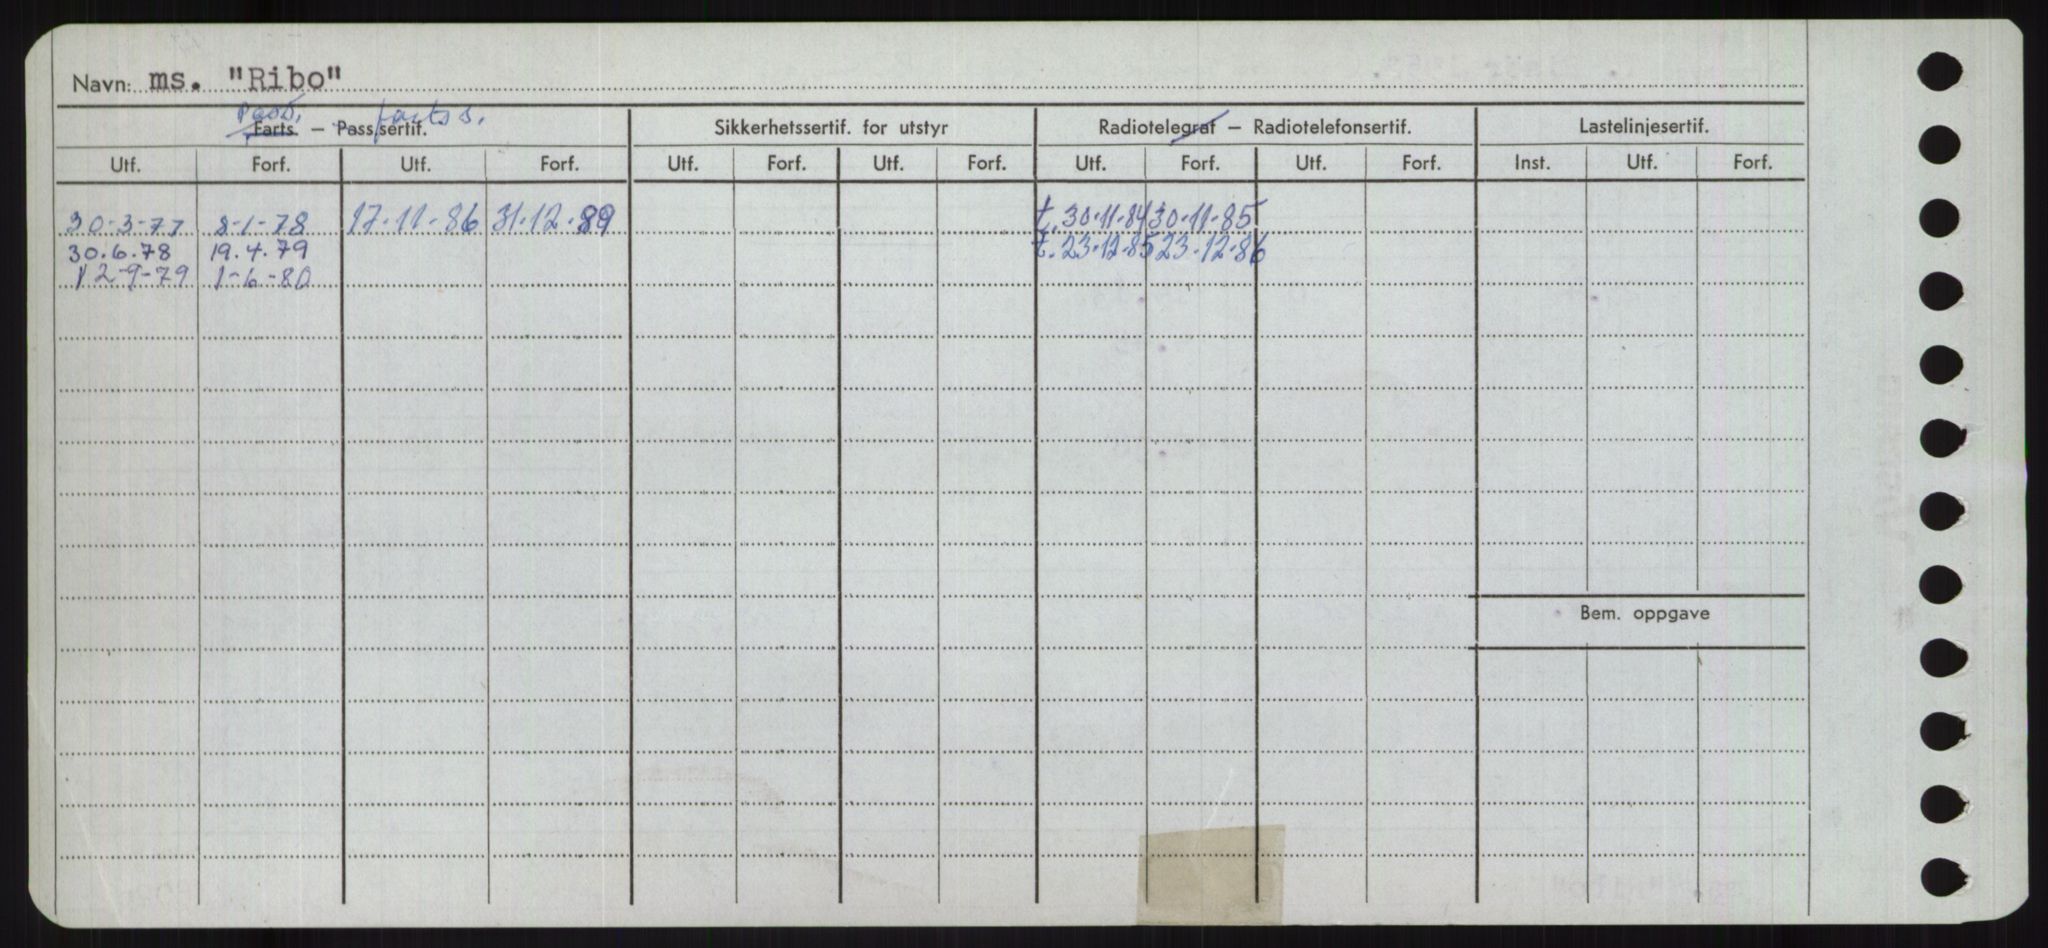 Navn: ms. "Ribo"
Pass. fartss.
Farts. – Pass.sertif. Sikkerhetssertif. for utstyr Radiotelegraf – Radiotelefonsertif. Lastelinjesertif.
Utf. Forf. Utf. Forf. Utf. Forf. Utf. Forf. Utf. Forf. Utf. Forf. Inst. Utf. Forf.
30-3-77 8-1-78 17-11-86 31.12.89 t. 30.11.84 30.11.85
30.6.78 19.4.79 t. 23.12.85 23.12.86
12-9-79 1-6-80
Bem. oppgave